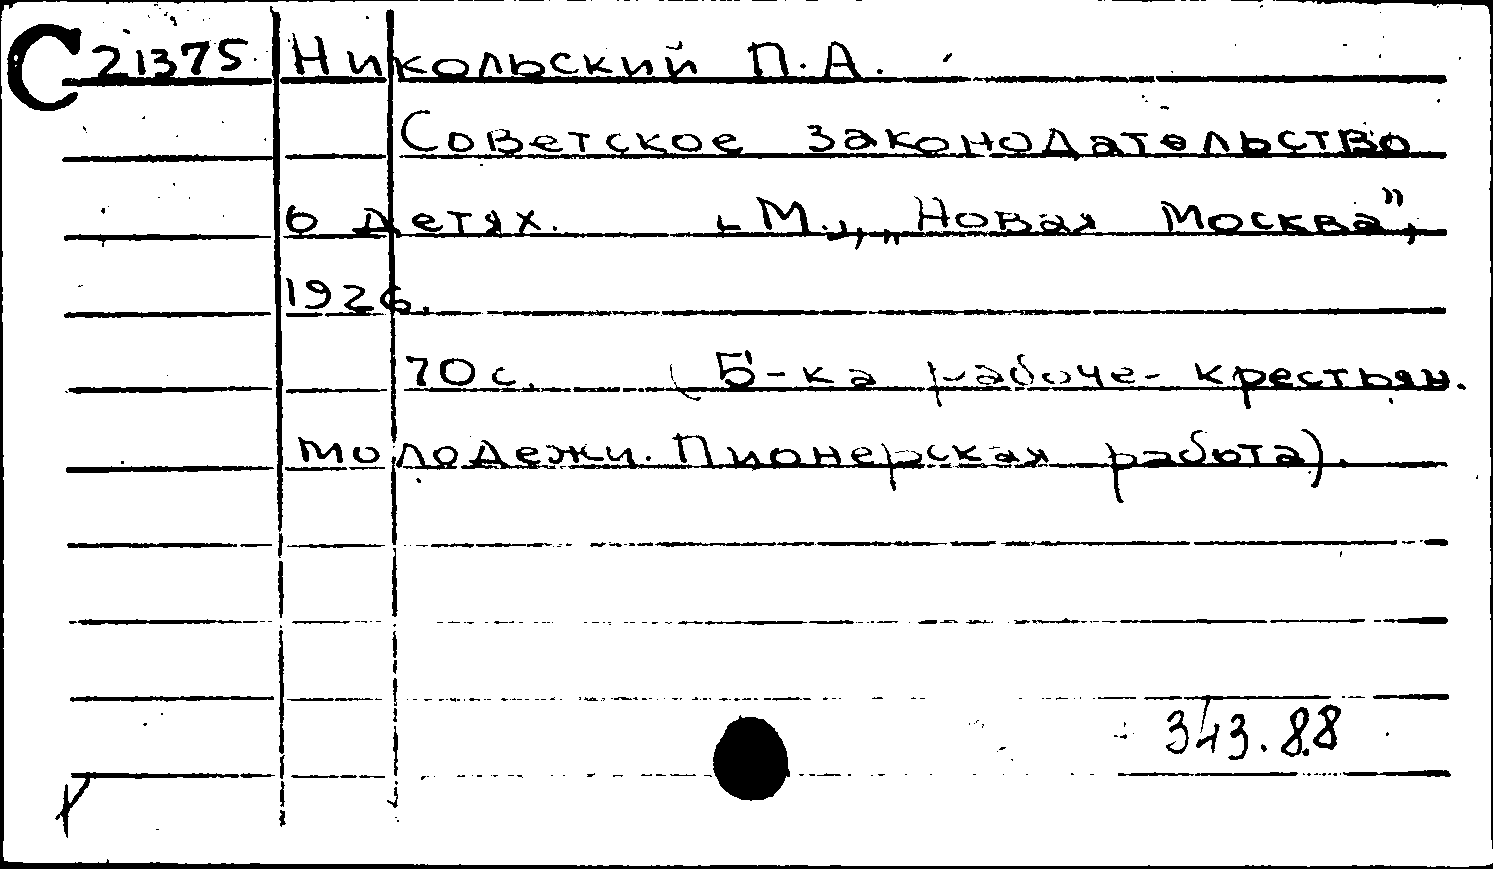 С 21375 Никольский П.А.
Советское законодательство
о детях. М., „Новая Москва",
1926.
70 с. (Б-ка рабоче-крестьян.
молодежи. Пионерская работа).
343.88